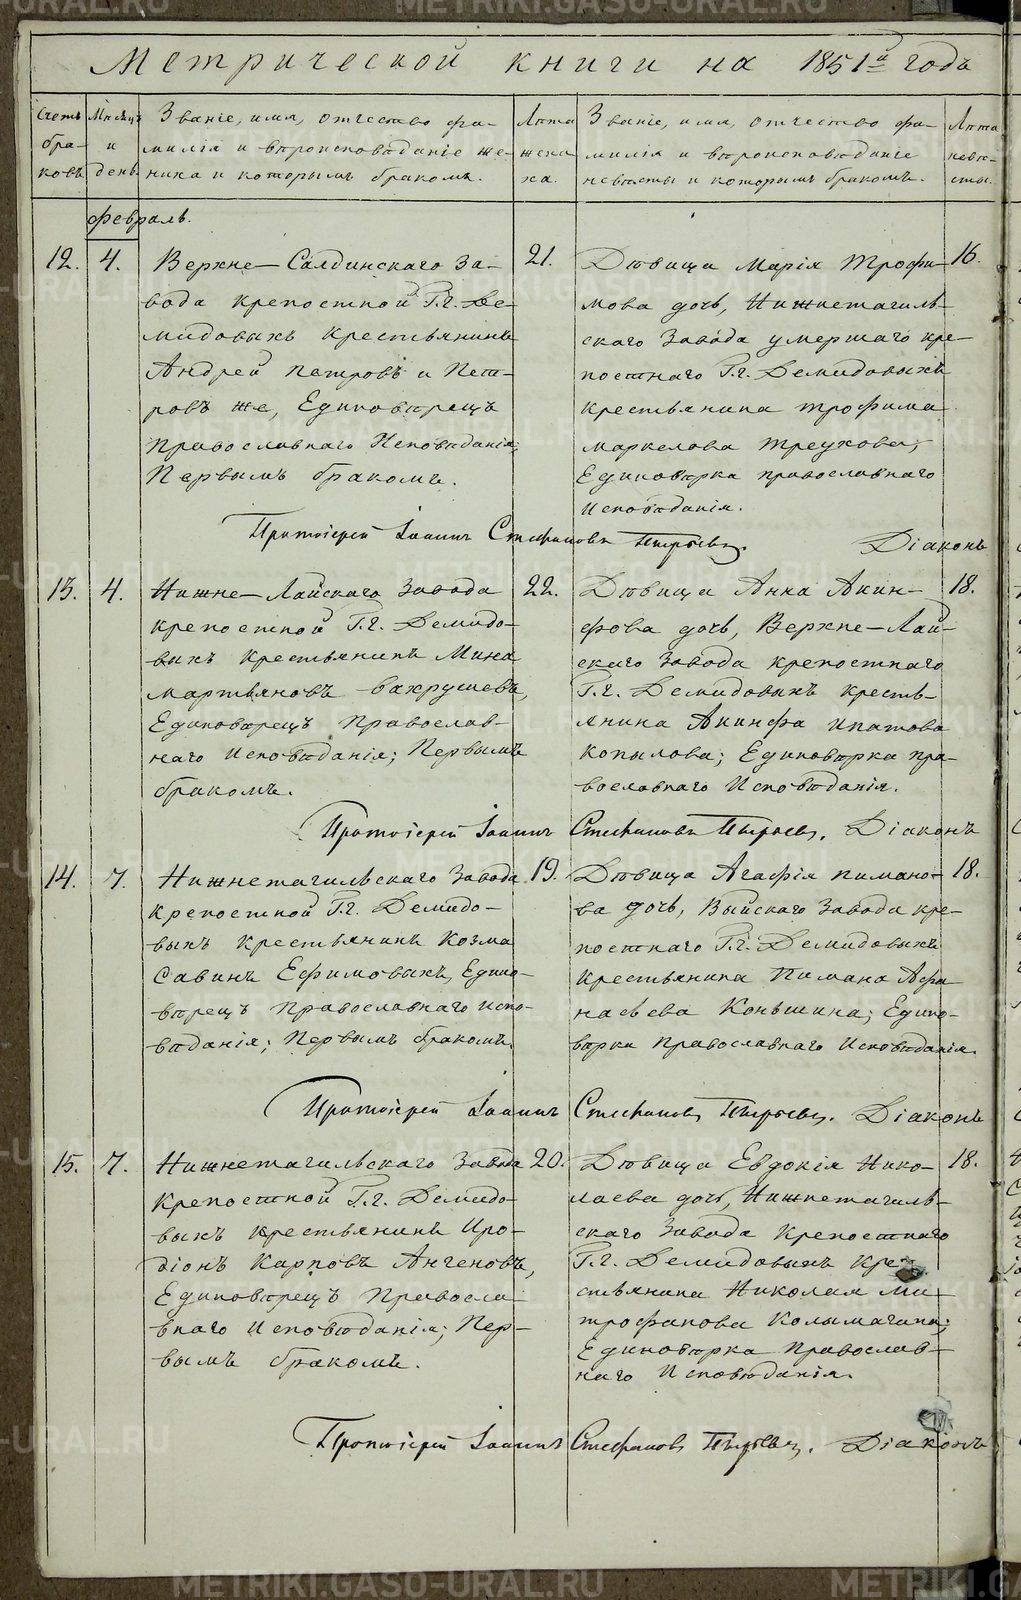 Метрической книги на 1851й годъ
Счетъ браковъ
Мѣсяцъ и день
Званіе, имя, отчество фа-
милія и вѣроисповѣданіе же-
ниха и которымъ бракомъ.
Лѣта жениха.
Званіе, имя, отчество фа-
милія и вѣроисповѣданіе
невѣсты и которымъ бракомъ.
Лѣта невѣсты.
Февраль.
12.
4.
Верхне-Салдинскаго За-
вода крепостной Г.г. Де-
мидовыхъ крестьянинъ
Андрей Петровъ и Пет-
ровъ же, Единовѣрецъ
православнаго Исповѣданія;
Первымъ бракомъ.
21.
Дѣвица Марія Трофи-
мова дочь, Нижнетагиль-
скаго Завода умершаго кре-
постнаго Г.г. Демидовыхъ
крестьянина Трофима
Маркелова Треухова;
Единовѣрка православнаго
Исповѣданія.
16.
Протоіерей Іоаннъ Стефановъ Пырьевъ. Діаконъ
13.
4.
Нижне-Лайскаго Завода
крепостной Г.г. Демидо-
выхъ крестьянинъ Мина
Мартьяновъ Вахрушевъ,
Единовѣрецъ Православ-
наго Исповѣданія; Первымъ
бракомъ.
22.
Дѣвица Анна Акин-
фова дочь, Верхне-Лай-
скаго Завода крепостнаго
Г.г. Демидовыхъ кресть-
янина Акинфа Ипатова
Копылова; Единовѣрка пра-
вославнаго Исповѣданія.
18.
Протоіерей Іоаннъ Стефановъ Пырьевъ. Діаконъ
14.
7.
Нижнетагильскаго Завода
крепостной Г.г. Демидо-
выхъ крестьянинъ Козма
Савинъ Ефимовыхъ, Едино-
вѣрецъ Православнаго испо-
вѣданія; Первымъ бракомъ.
19.
Дѣвица Агафія Пимано-
ва дочь, Выйскаго Завода кре-
постнаго Г.г. Демидовыхъ
крестьянина Пимана Афа-
насьева Коньшина; Едино-
вѣрка Православнаго Исповѣданія.
18.
Протоіерей Іоаннъ Стефановъ Пырьевъ. Діаконъ
15.
7.
Нижнетагильскаго Завода
крепостной Г.г. Демидо-
выхъ крестьянинъ Иро-
діонъ Карповъ Антеновъ,
Единовѣрецъ Правосла-
внаго Исповѣданія; Пер-
вымъ бракомъ.
20.
Дѣвица Евдокія Нико-
лаева дочь, Нижнетагиль-
скаго Завода Крепостнаго
Г.г. Демидовыхъ кре-
стьянина Николая Ми-
трофанова Колымагина;
Единовѣрка Православ-
наго Исповѣданія.
18.
Протоіерей Іоаннъ Стефановъ Пырьевъ. Діаконъ
METRIKI.GASO-URAL.RU